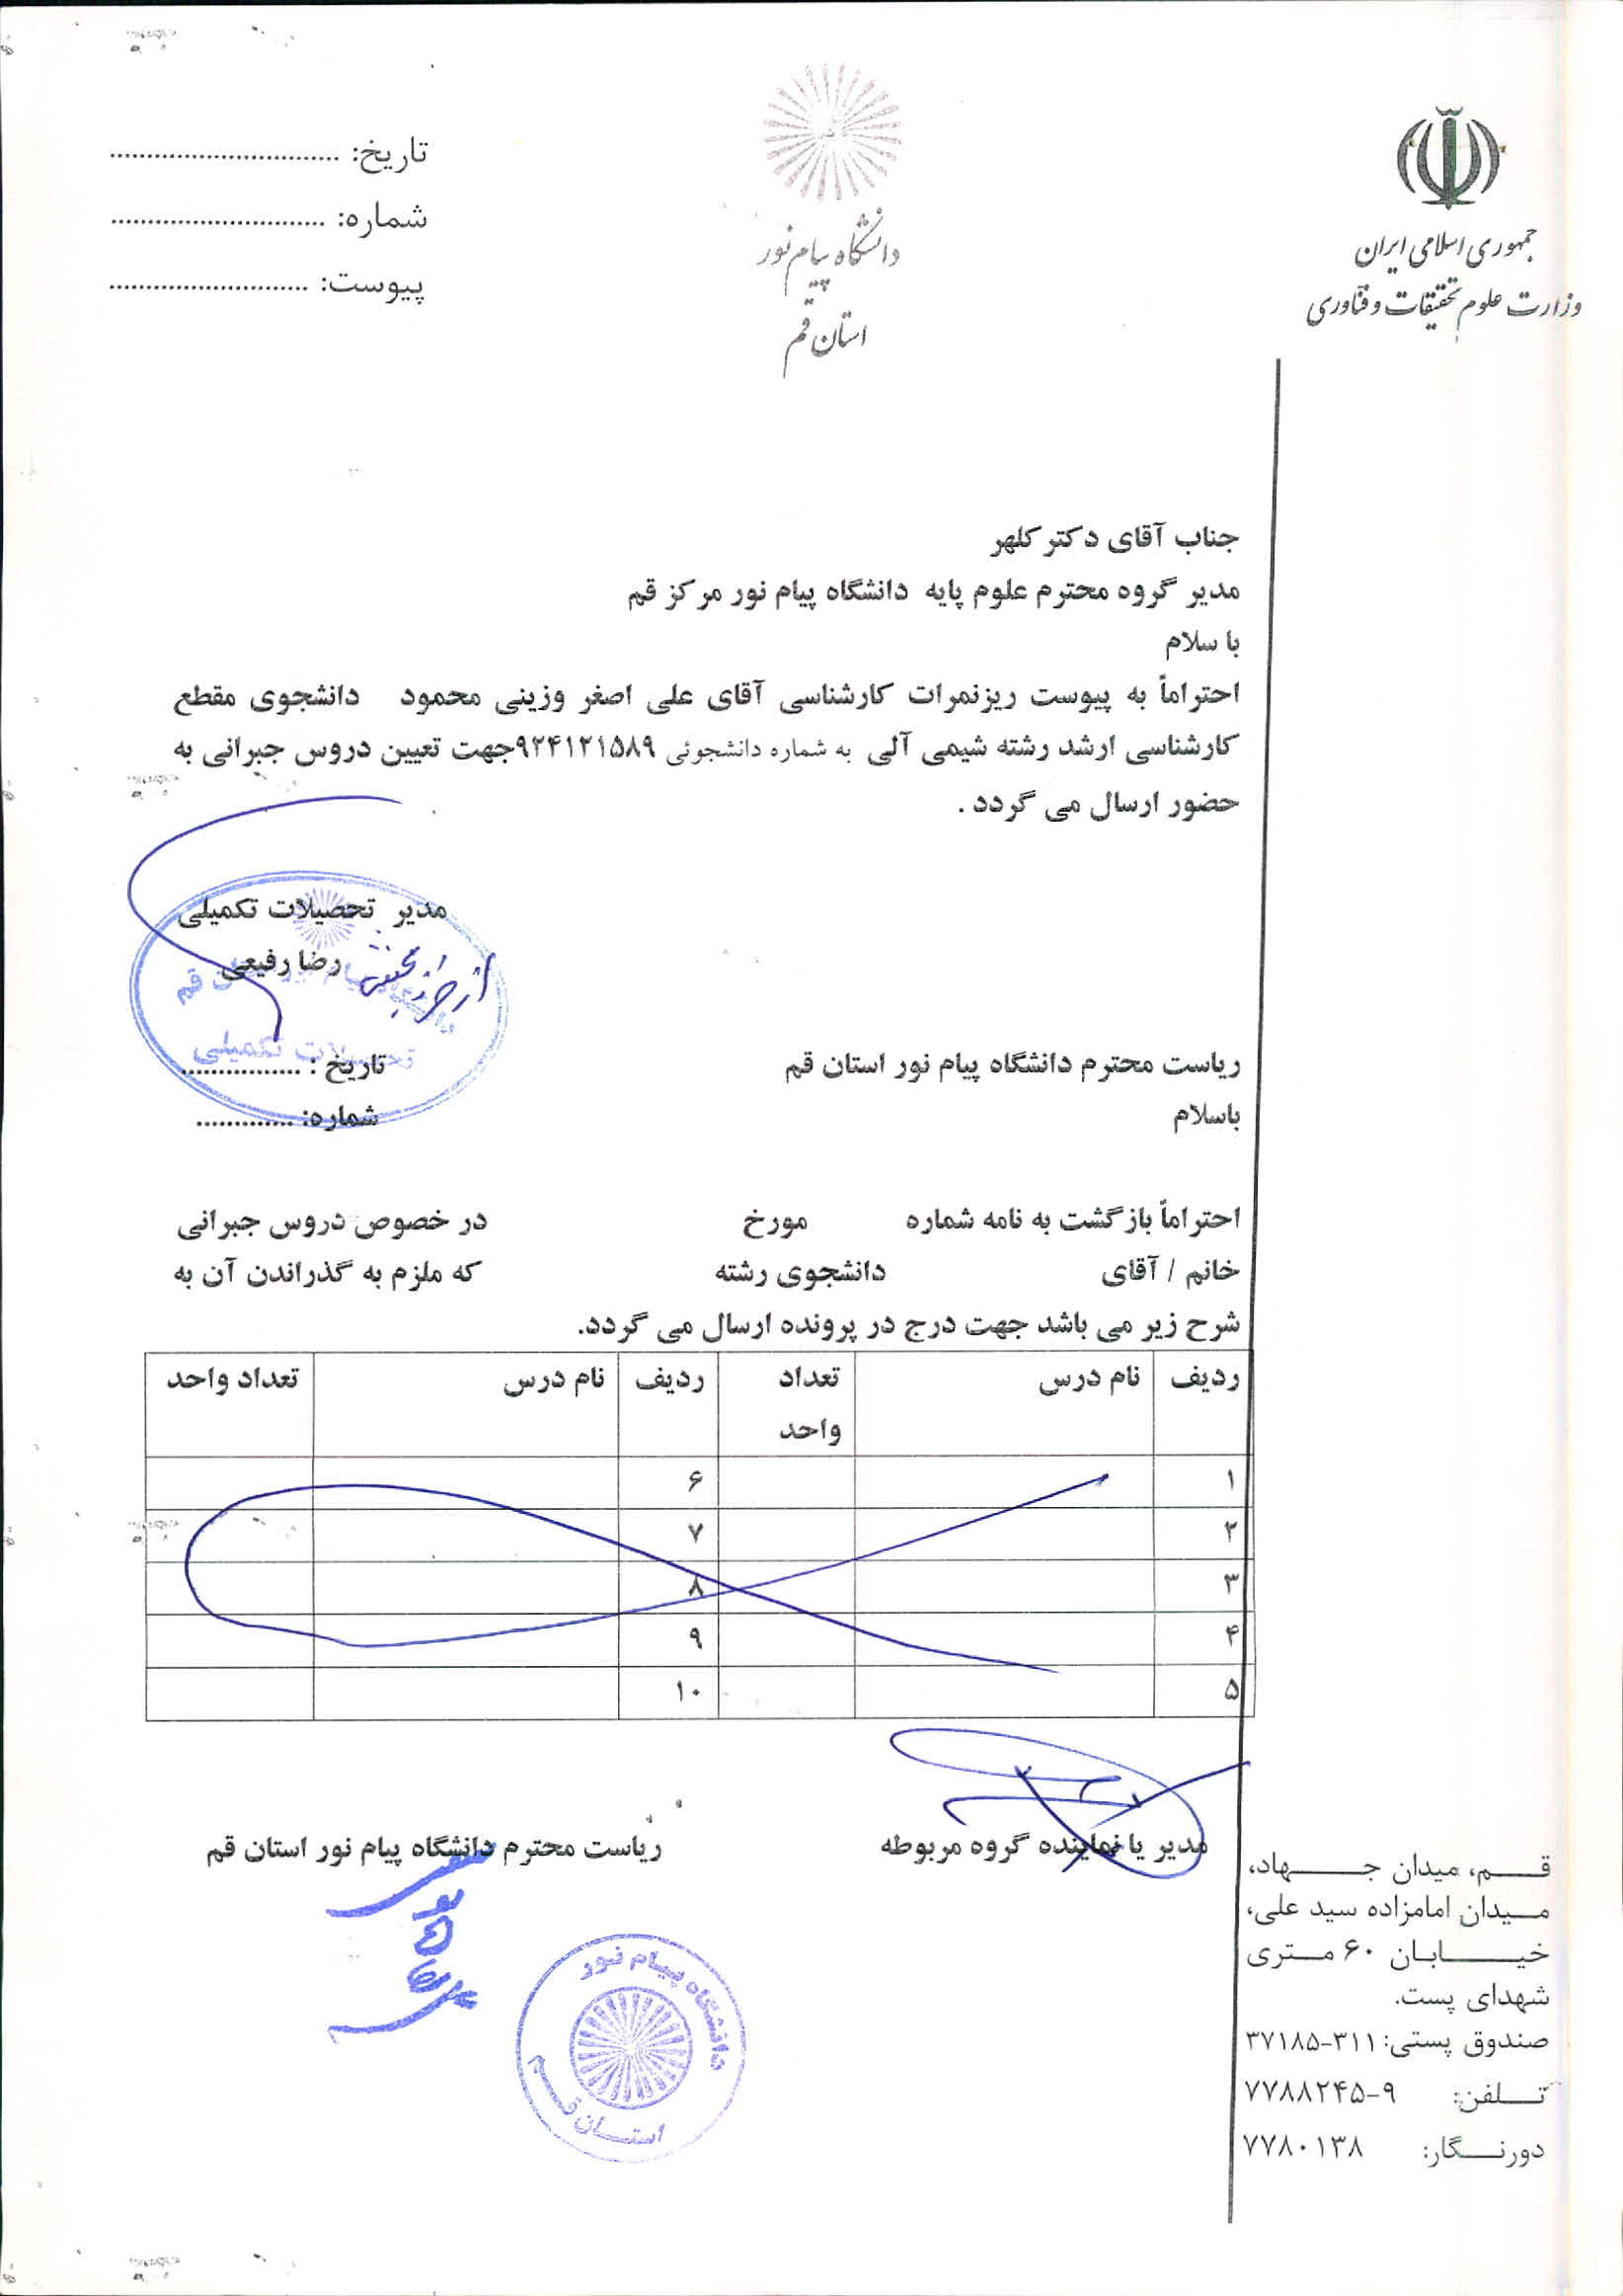 جمهوری اسلامی ایران
وزارت علوم تحقیقات و فناوری
دانشگاه پیام نور
استان قم
تاریخ: ..............................
شماره: ............................
پیوست: ..........................
جناب آقای دکتر کلهر
مدیر گروه محترم علوم پایه دانشگاه پیام نور مرکز قم
با سلام
احتراماً به پیوست ریزنمرات کارشناسی آقای علی اصغر وزینی محمود دانشجوی مقطع
کارشناسی ارشد رشته شیمی آلی به شماره دانشجوئی ۹۲۴۱۲۱۵۸۹جهت تعیین دروس جبرانی به
حضور ارسال می گردد .
مدیر تحصیلات تکمیلی
رضا رفیعی
تحصیلات تکمیلی
ریاست محترم دانشگاه پیام نور استان قم
تاریخ : ................
باسلام
شماره: .............
احتراماً بازگشت به نامه شماره مورخ در خصوص دروس جبرانی
خانم / آقای دانشجوی رشته که ملزم به گذراندن آن به
شرح زیر می باشد جهت درج در پرونده ارسال می گردد.
ردیف نام درس تعداد واحد ردیف نام درس تعداد واحد
۱ ۶
۲ ۷
۳ ۸
۴ ۹
۵ ۱۰
مدیر یا نماینده گروه مربوطه
ریاست محترم دانشگاه پیام نور استان قم
دانشگاه پیام نور
استان قم
قم، میدان جهاد،
میدان امامزاده سید علی،
خیابان ۶۰ متری
شهدای پست.
صندوق پستی: ۳۱۱-۳۷۱۸۵
تلفن: ۹-۷۷۸۸۲۴۵
دورنگار: ۷۷۸۰۱۳۸